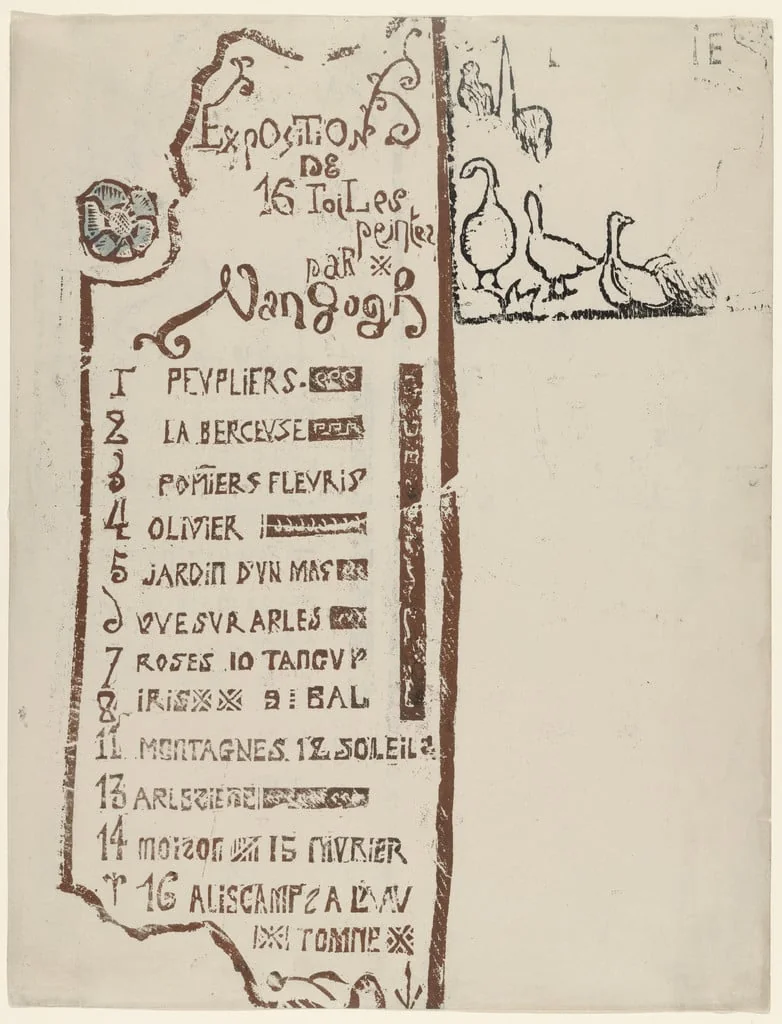 EXPOSITION
DE
16 ToiLes
peintes
par
Van gogh
1 PEVPLIERS.
2 LA BERCEVSE
3 POM̄IERS FLEVRIS
4 OLIVIER
5 JARDIN D'VN MAS
6 VVE SVR ARLES
7 ROSES 10 TANGVY
8 IRIS 9 BAL
11 MONTAGNES. 12 SOLEILS
13 ARLESIENE
14 MOISON 15 FÉVRIER
16 ALISCAMPS A L'AV
TOMNE
E